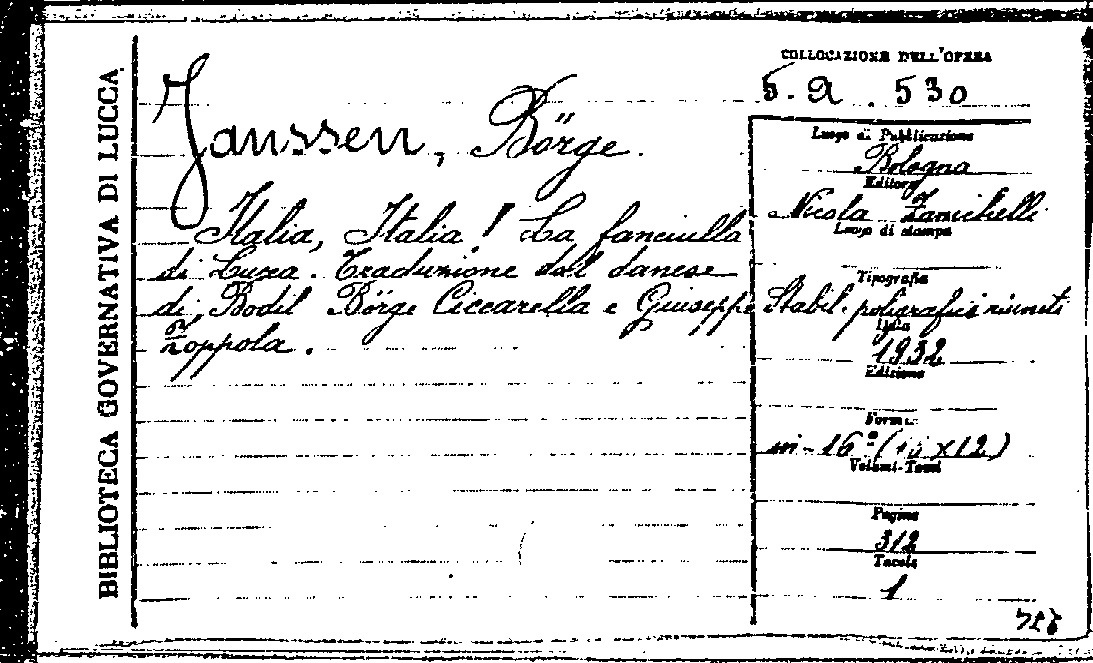 BIBLIOTECA GOVERNATIVA DI LUCCA
COLLOCAZIONE DELL'OPERA
5. a. 530
Janssen, Börge.
Italia, Italia! La fanciulla
di Lucca. Traduzione dal danese
di Bodil Börge Ciccarella e Giuseppe
Zoppola.
Luogo di Pubblicazione
Bologna
Editore
Nicola Zanichelli
Luogo di stampa
Tipografia
Stabil. poligrafici riuniti
1932
Edizione
Formato
in-16º ( x12)
Volumi-Tomi
Pagine
312
Tavole
1